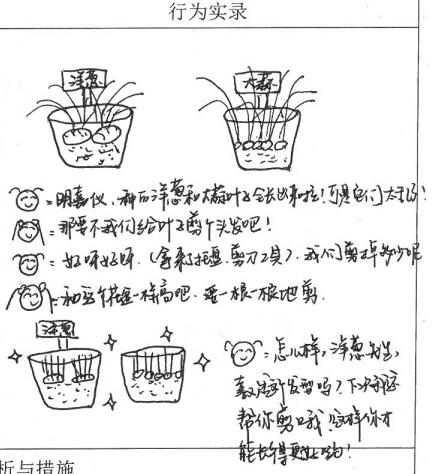 行为实录
洋葱
大蒜
：明嘉仪，种的洋葱和大蒜叶子全长出来啦！可是它们太长了！
：那要不我们给叶子剪个头发吧！
：好呀好呀．（拿来托盘．剪刀工具）．我们剪掉多少呢
：和这个花盆一样高吧．要一根一根地剪．
洋葱
：怎么样，洋葱先生，
喜欢这个发型吗？下次我还
帮你剪哦，这样你才
能长得更壮哟！
析与措施